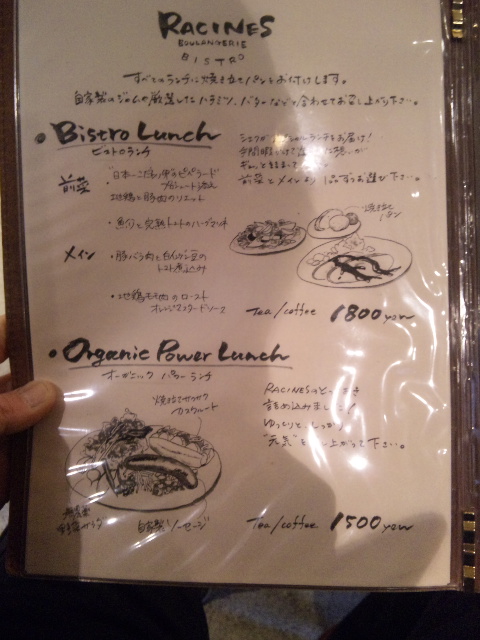 RACINES
BOULANGERIE
BISTRO
すべてのランチに焼き立てパンをお付けします。
自家製のジャムや厳選したハチミツ、バターなどと合わせてお召し上がり下さい。
• Bistro Lunch
ビストロランチ
シェフが ランチをお届け!
ぎゅっと詰まって
前菜とメイン お選び下さい。
前菜
• "日本一こだわり卵"のピペラード
プロシュート添え
地鶏と豚肉のリエット
• 魚介と完熟トマトのハーブマリネ
焼き立てパン
メイン
• 豚バラ肉と白インゲン豆の
トマト煮込み
• 地鶏モモ肉のロースト
オレンジマスタードソース
Tea/coffee 1800yen
• Organic Power Lunch
オーガニック パワーランチ
焼き立てサクサク
RACINESのとっておき
詰め込みました!
ゆったりと しっかり
"元気"を 召し上がって下さい。
自家製ソーセージ
Tea/coffee 1500yen